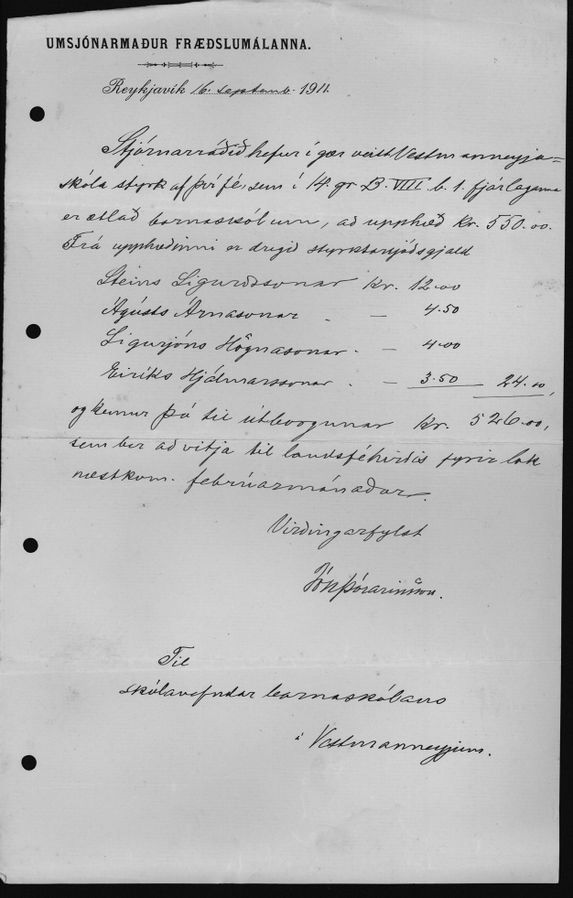 UMSJÓNARMAÐUR FRÆÐSLUMÁLANNA.
Reykjavík 16. septemb. 1911.
Stjórnarráðið hefur í gær veitt Vestmanneyja-
skóla styrk af því fé, sem í 14. gr B. VIII. b. 1. fjárlaganna
er ætlað barnaskólum, að upphæð kr. 550.00.
Frá upphæðinni er dregið styrktarsjóðsgjald
Steins Sigurðssonar kr. 12.00
Ágústs Árnasonar . — 4.50
Sigurjóns Högnasonar . — 4.00
Eiríks Hjálmarssonar . — 3.50 — 24.00,
og kemur þá til útborgunar kr. 526.00,
sem ber að vitja til landsféhirðis fyrir lok
næstkom. febrúarmánaðar.
Virðingarfylst
Jón Þórarinsson.
Til
skólanefndar barnaskólans
í Vestmanneyjum.